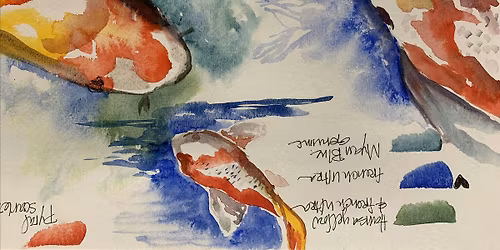 Hansa yellow
& French Ultra
French Ultra
Mayan Blue
Genuine
Pyrol